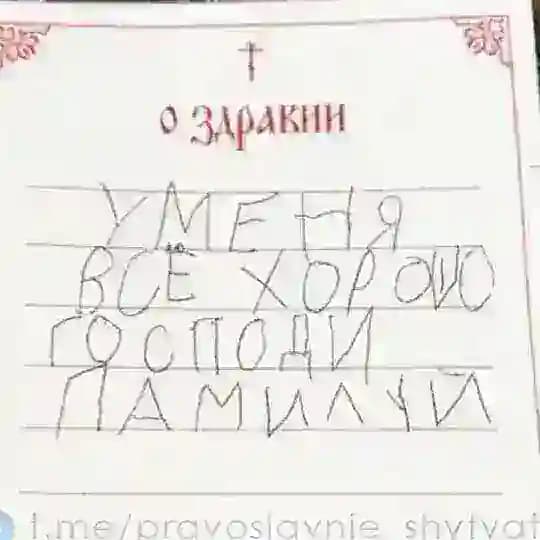 О ЗДРАВИИ
У МЕНЯ
ВСЁ ХОРОШО
ГОСПОДИ
ПАМИЛУЙ
t.me/pravoslavnie_shytyat